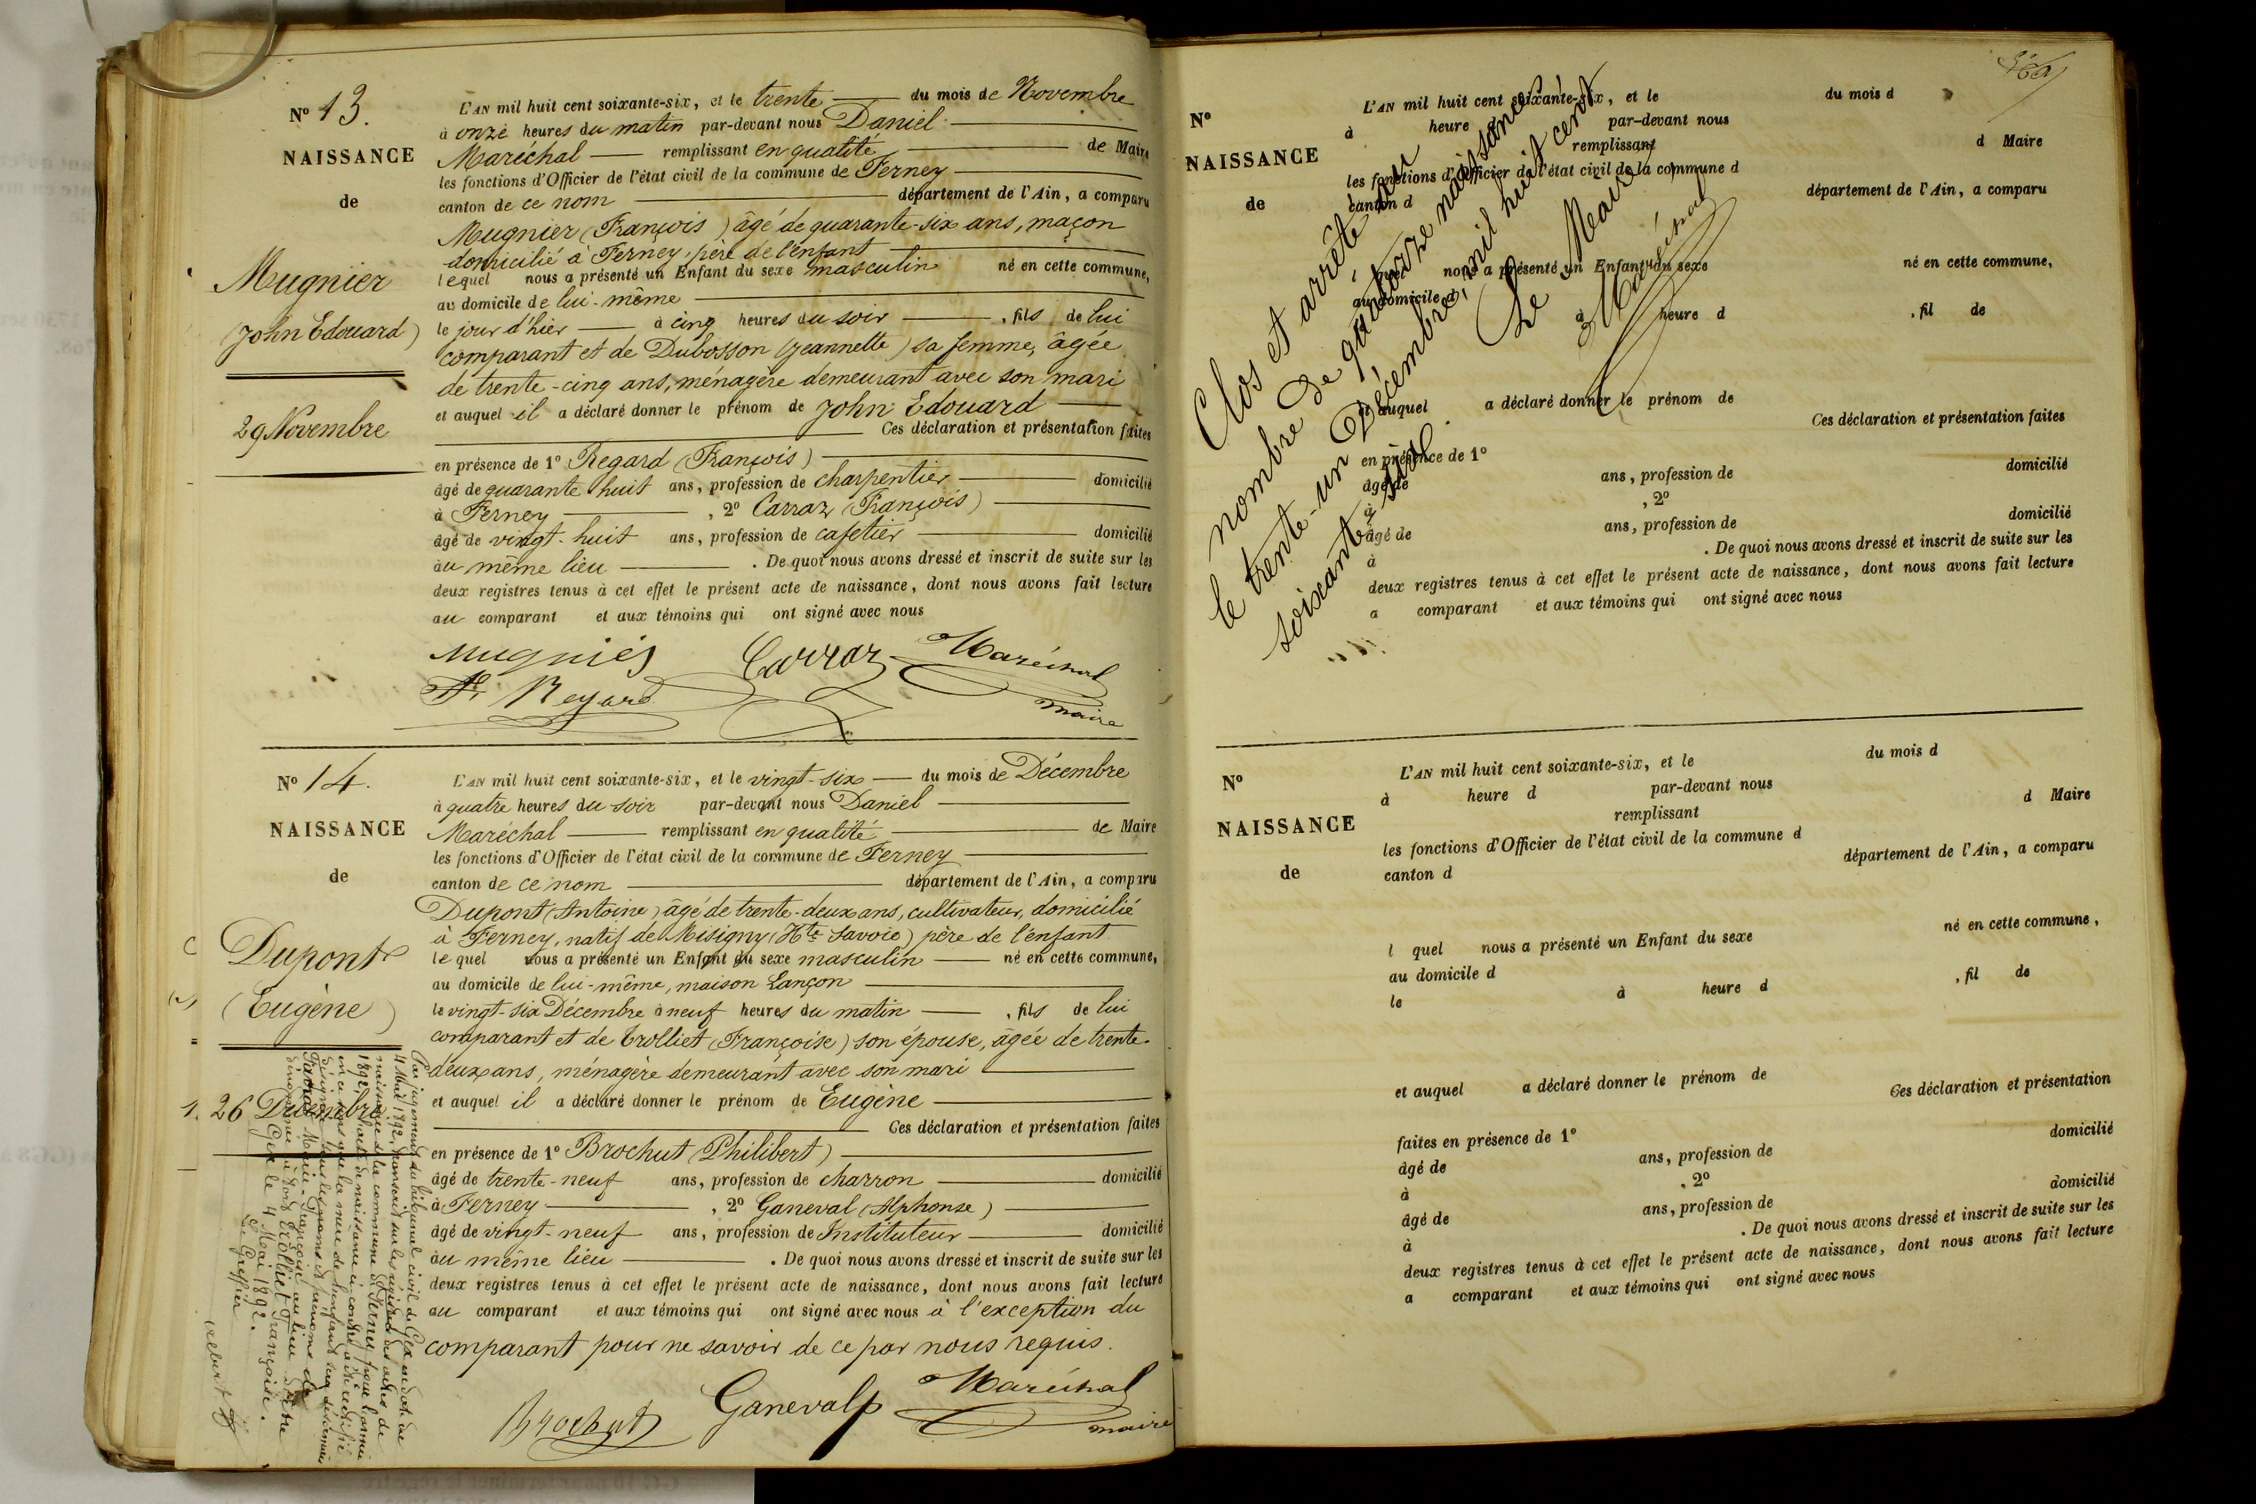 N° 13.
NAISSANCE
de
Mugnier
(John Edouard)
29 Novembre
L'AN mil huit cent soixante-six, et le trente du mois de Novembre
à onze heures du matin par-devant nous Daniel
Maréchal remplissant en qualité de Maire
les fonctions d'Officier de l'état civil de la commune de Ferney
canton de ce nom département de l'Ain, a comparu
Mugnier (François) âgé de quarante-six ans, maçon
domicilié à Ferney, père de l'enfant
lequel nous a présenté un Enfant du sexe masculin né en cette commune,
au domicile de lui-même
le jour d'hier à cinq heures du soir , fils de lui
comparant et de Dubosson (Jeannette) sa femme, âgée
de trente-cinq ans, ménagère demeurant avec son mari
et auquel il a déclaré donner le prénom de John Edouard
Ces déclaration et présentation faites
en présence de 1° Regard (François)
âgé de quarante huit ans, profession de charpentier domicilié
à Ferney , 2° Carraz (François)
âgé de vingt-huit ans, profession de cafetier domicilié
au même lieu . De quoi nous avons dressé et inscrit de suite sur les
deux registres tenus à cet effet le présent acte de naissance, dont nous avons fait lecture
au comparant et aux témoins qui ont signé avec nous
Mugnier Carraz Maréchal
Fs Regard maire
N° 14.
NAISSANCE
de
Dupont
(Eugène)
26 Décembre
L'AN mil huit cent soixante-six, et le vingt-six du mois de Décembre
à quatre heures du soir par-devant nous Daniel
Maréchal remplissant en qualité de Maire
les fonctions d'Officier de l'état civil de la commune de Ferney
canton de ce nom département de l'Ain, a comparu
Dupont (Antoine) âgé de trente-deux ans, cultivateur, domicilié
à Ferney, natif de Misigny (Hte Savoie) père de l'enfant
lequel nous a présenté un Enfant du sexe masculin né en cette commune,
au domicile de lui-même, maison Lançon
le vingt-six Décembre à neuf heures du matin , fils de lui
comparant et de Trolliet (Françoise) son épouse, âgée de trente-
deux ans, ménagère demeurant avec son mari
et auquel il a déclaré donner le prénom de Eugène
Ces déclaration et présentation faites
en présence de 1° Brochut (Philibert)
âgé de trente-neuf ans, profession de charron domicilié
à Ferney , 2° Ganeval (Alphonse)
âgé de vingt-neuf ans, profession de Instituteur domicilié
au même lieu . De quoi nous avons dressé et inscrit de suite sur les
deux registres tenus à cet effet le présent acte de naissance, dont nous avons fait lecture
au comparant et aux témoins qui ont signé avec nous à l'exception du
comparant pour ne savoir de ce par nous requis.
Brochut Ganeval Maréchal
maire
Par jugement du tribunal civil de Gex en date du
4 Mai 1892, transcrit sur les registres des actes de
naissance de la commune de Ferney pour l'année
1892, l'acte de naissance ci-contre a été rectifié
en ce sens que la mère de l'enfant sera désormais
désignée sous les noms et prénoms de
Trolliet Marie-Françoise au lieu d'être
dénommée à tort Trolliet Françoise.
Gex le 4 Mai 1892.
Le Greffier
N°
NAISSANCE
de
L'AN mil huit cent soixante-six, et le du mois d
à heure par-devant nous
remplissant d Maire
les fonctions d'Officier de l'état civil de la commune d
canton d département de l'Ain, a comparu
quel nous a présenté un Enfant du sexe né en cette commune,
au domicile d
à heure d , fil de
et auquel a déclaré donner le prénom de
Ces déclaration et présentation faites
en présence de 1°
âgé de ans, profession de domicilié
à , 2°
âgé de ans, profession de domicilié
à . De quoi nous avons dressé et inscrit de suite sur les
deux registres tenus à cet effet le présent acte de naissance, dont nous avons fait lecture
a comparant et aux témoins qui ont signé avec nous
Clos et arrêté au
nombre de quatorze naissances
le trente-un Décembre, mil huit cent
soixante six.
Le Maire,
Maréchal
N°
NAISSANCE
de
L'AN mil huit cent soixante-six, et le du mois d
à heure d par-devant nous
remplissant d Maire
les fonctions d'Officier de l'état civil de la commune d
canton d département de l'Ain, a comparu
l quel nous a présenté un Enfant du sexe né en cette commune,
au domicile d
le à heure d , fil de
et auquel a déclaré donner le prénom de
Ces déclaration et présentation
faites en présence de 1°
âgé de ans, profession de domicilié
à , 2°
âgé de ans, profession de domicilié
à . De quoi nous avons dressé et inscrit de suite sur les
deux registres tenus à cet effet le présent acte de naissance, dont nous avons fait lecture
a comparant et aux témoins qui ont signé avec nous